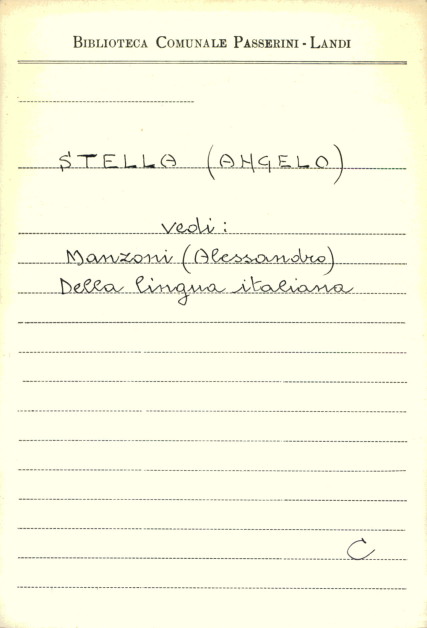 BIBLIOTECA COMUNALE PASSERINI - LANDI
STELLA (ANGELO)
vedi:
Manzoni (Alessandro)
Della lingua italiana
C